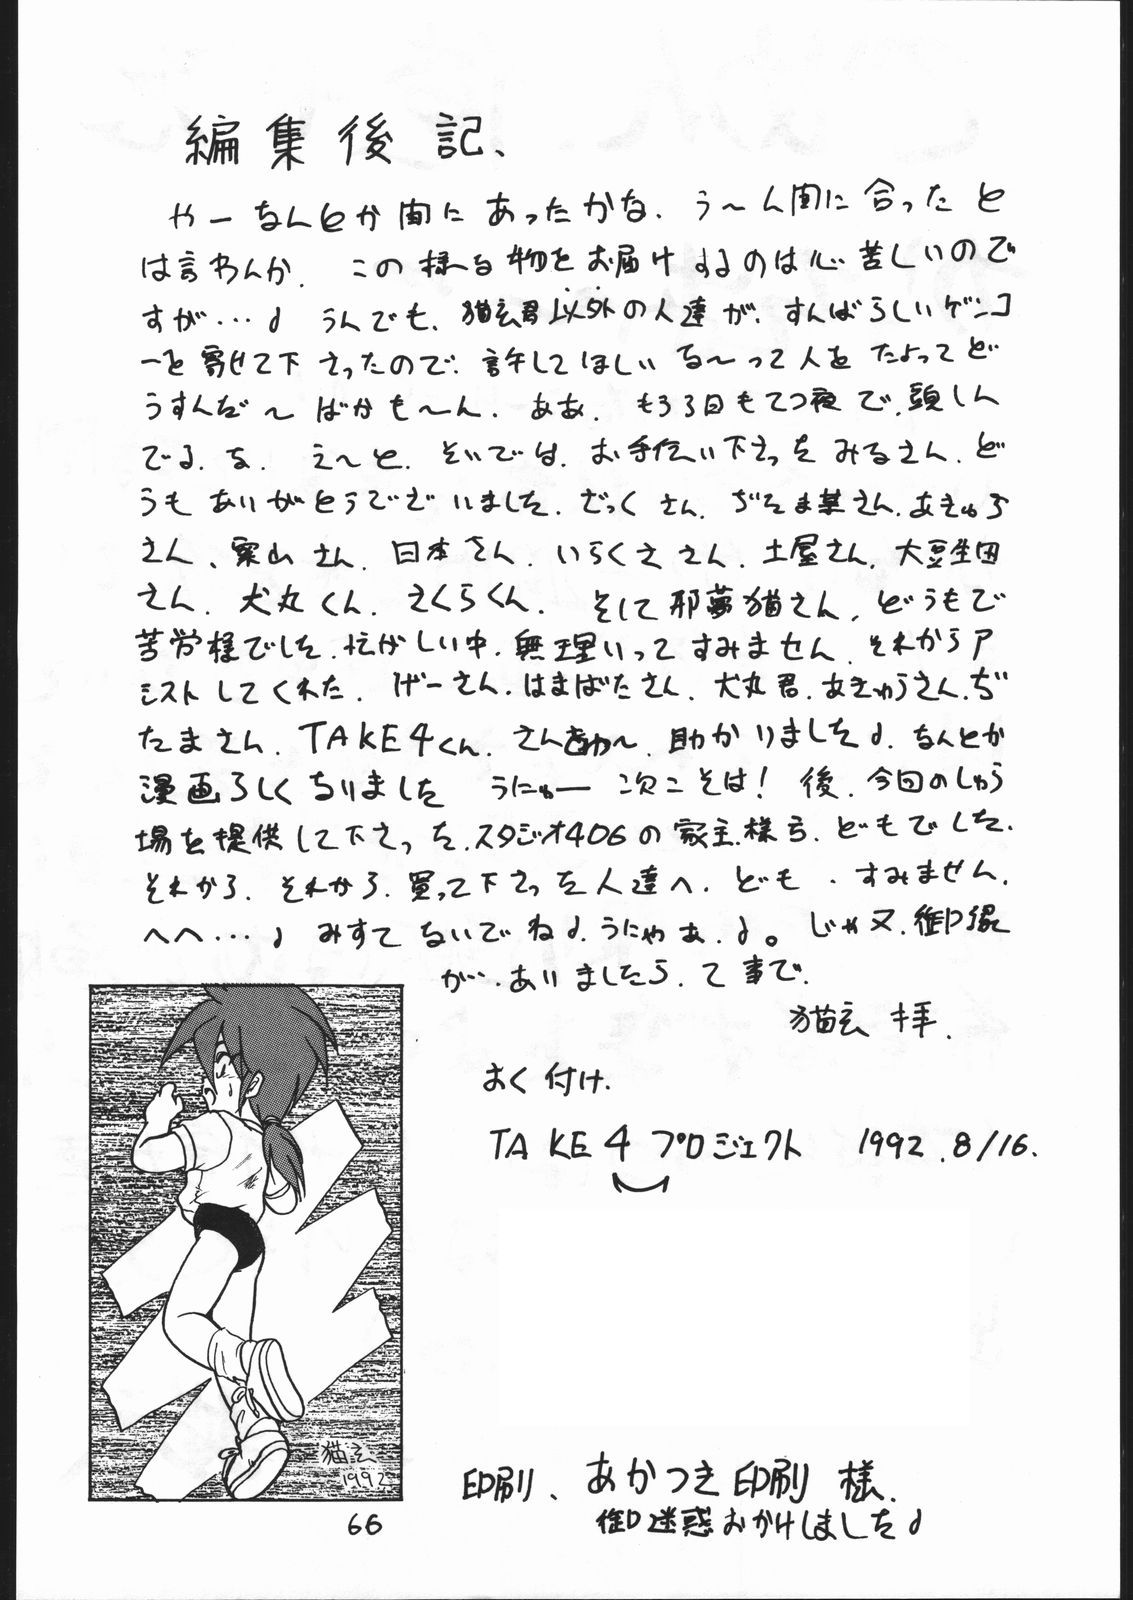 編集後記、
やーなんとか間にあったかな、う〜ん間に合ったと
は言わんか、この様な物をお届けするのは心苦しいので
すが…♩うんでも、猫玄君以外の人達が、すんばらしいゲンコ
ーを寄せて下さったので、許してほしいな〜って人をたよってど
うすんだ〜ばかも〜ん、ああ、もう3日もてつ夜で、頭しん
でるな、え〜と、そいでは、お手伝い下さったみなさん、ど
うもありがとうでございました、ざっくさん、ぢたま某さん、あきゅう
さん、栗山さん、日本さん、いらくささん、土屋さん、大豆生田
さん、犬丸くん、さくらくん、そして邪夢猫さん、どうもご
苦労様でした、忙がしい中、無理いってすみません、それからア
シストしてくれた、げーさん、はまばたさん、犬丸君、あきゅうさん、ぢ
たまさん、TAKE4くん、さん助かりました♩、なんとか
漫画らしくなりました うにゅー 次こそは!後、今回のしゅら
場を提供して下さった、スタジオ406の家主様方、どもでした、
それから、それから、買って下さった人達へ、ども、すみません、
へへ…♩みすてないでね♩、うにゃあ、♩。じゃ又、御縁
が…ありましたら、て事で、
猫玄 拝、
おく付け、
TAKE4プロジェクト 1992.8/16.
猫玄
1992
印刷、あかつき印刷 様、
御迷惑おかけしました♩
66